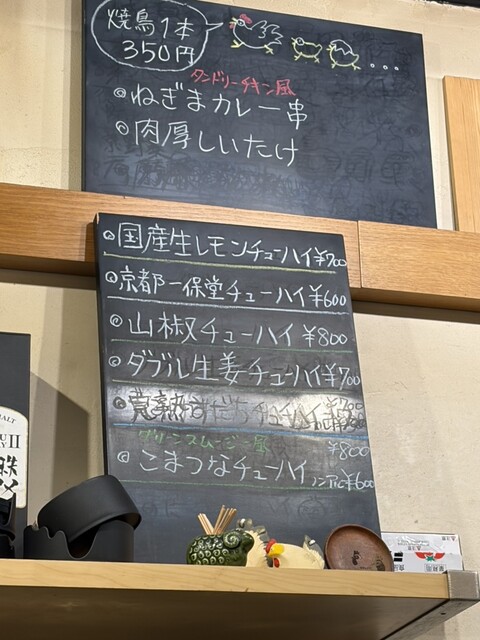 焼鳥1本
350円
タンドリーチキン風
◎ねぎまカレー串
◎肉厚しいたけ
◎国産生レモンチューハイ¥700
◎京都一保堂チューハイ¥600
◎山椒チューハイ¥800
◎ダブル生姜チューハイ¥700
◎完熟すだちチューハイ
グリーンスムージー風
¥800
◎こまつなチューハイノンアル¥600